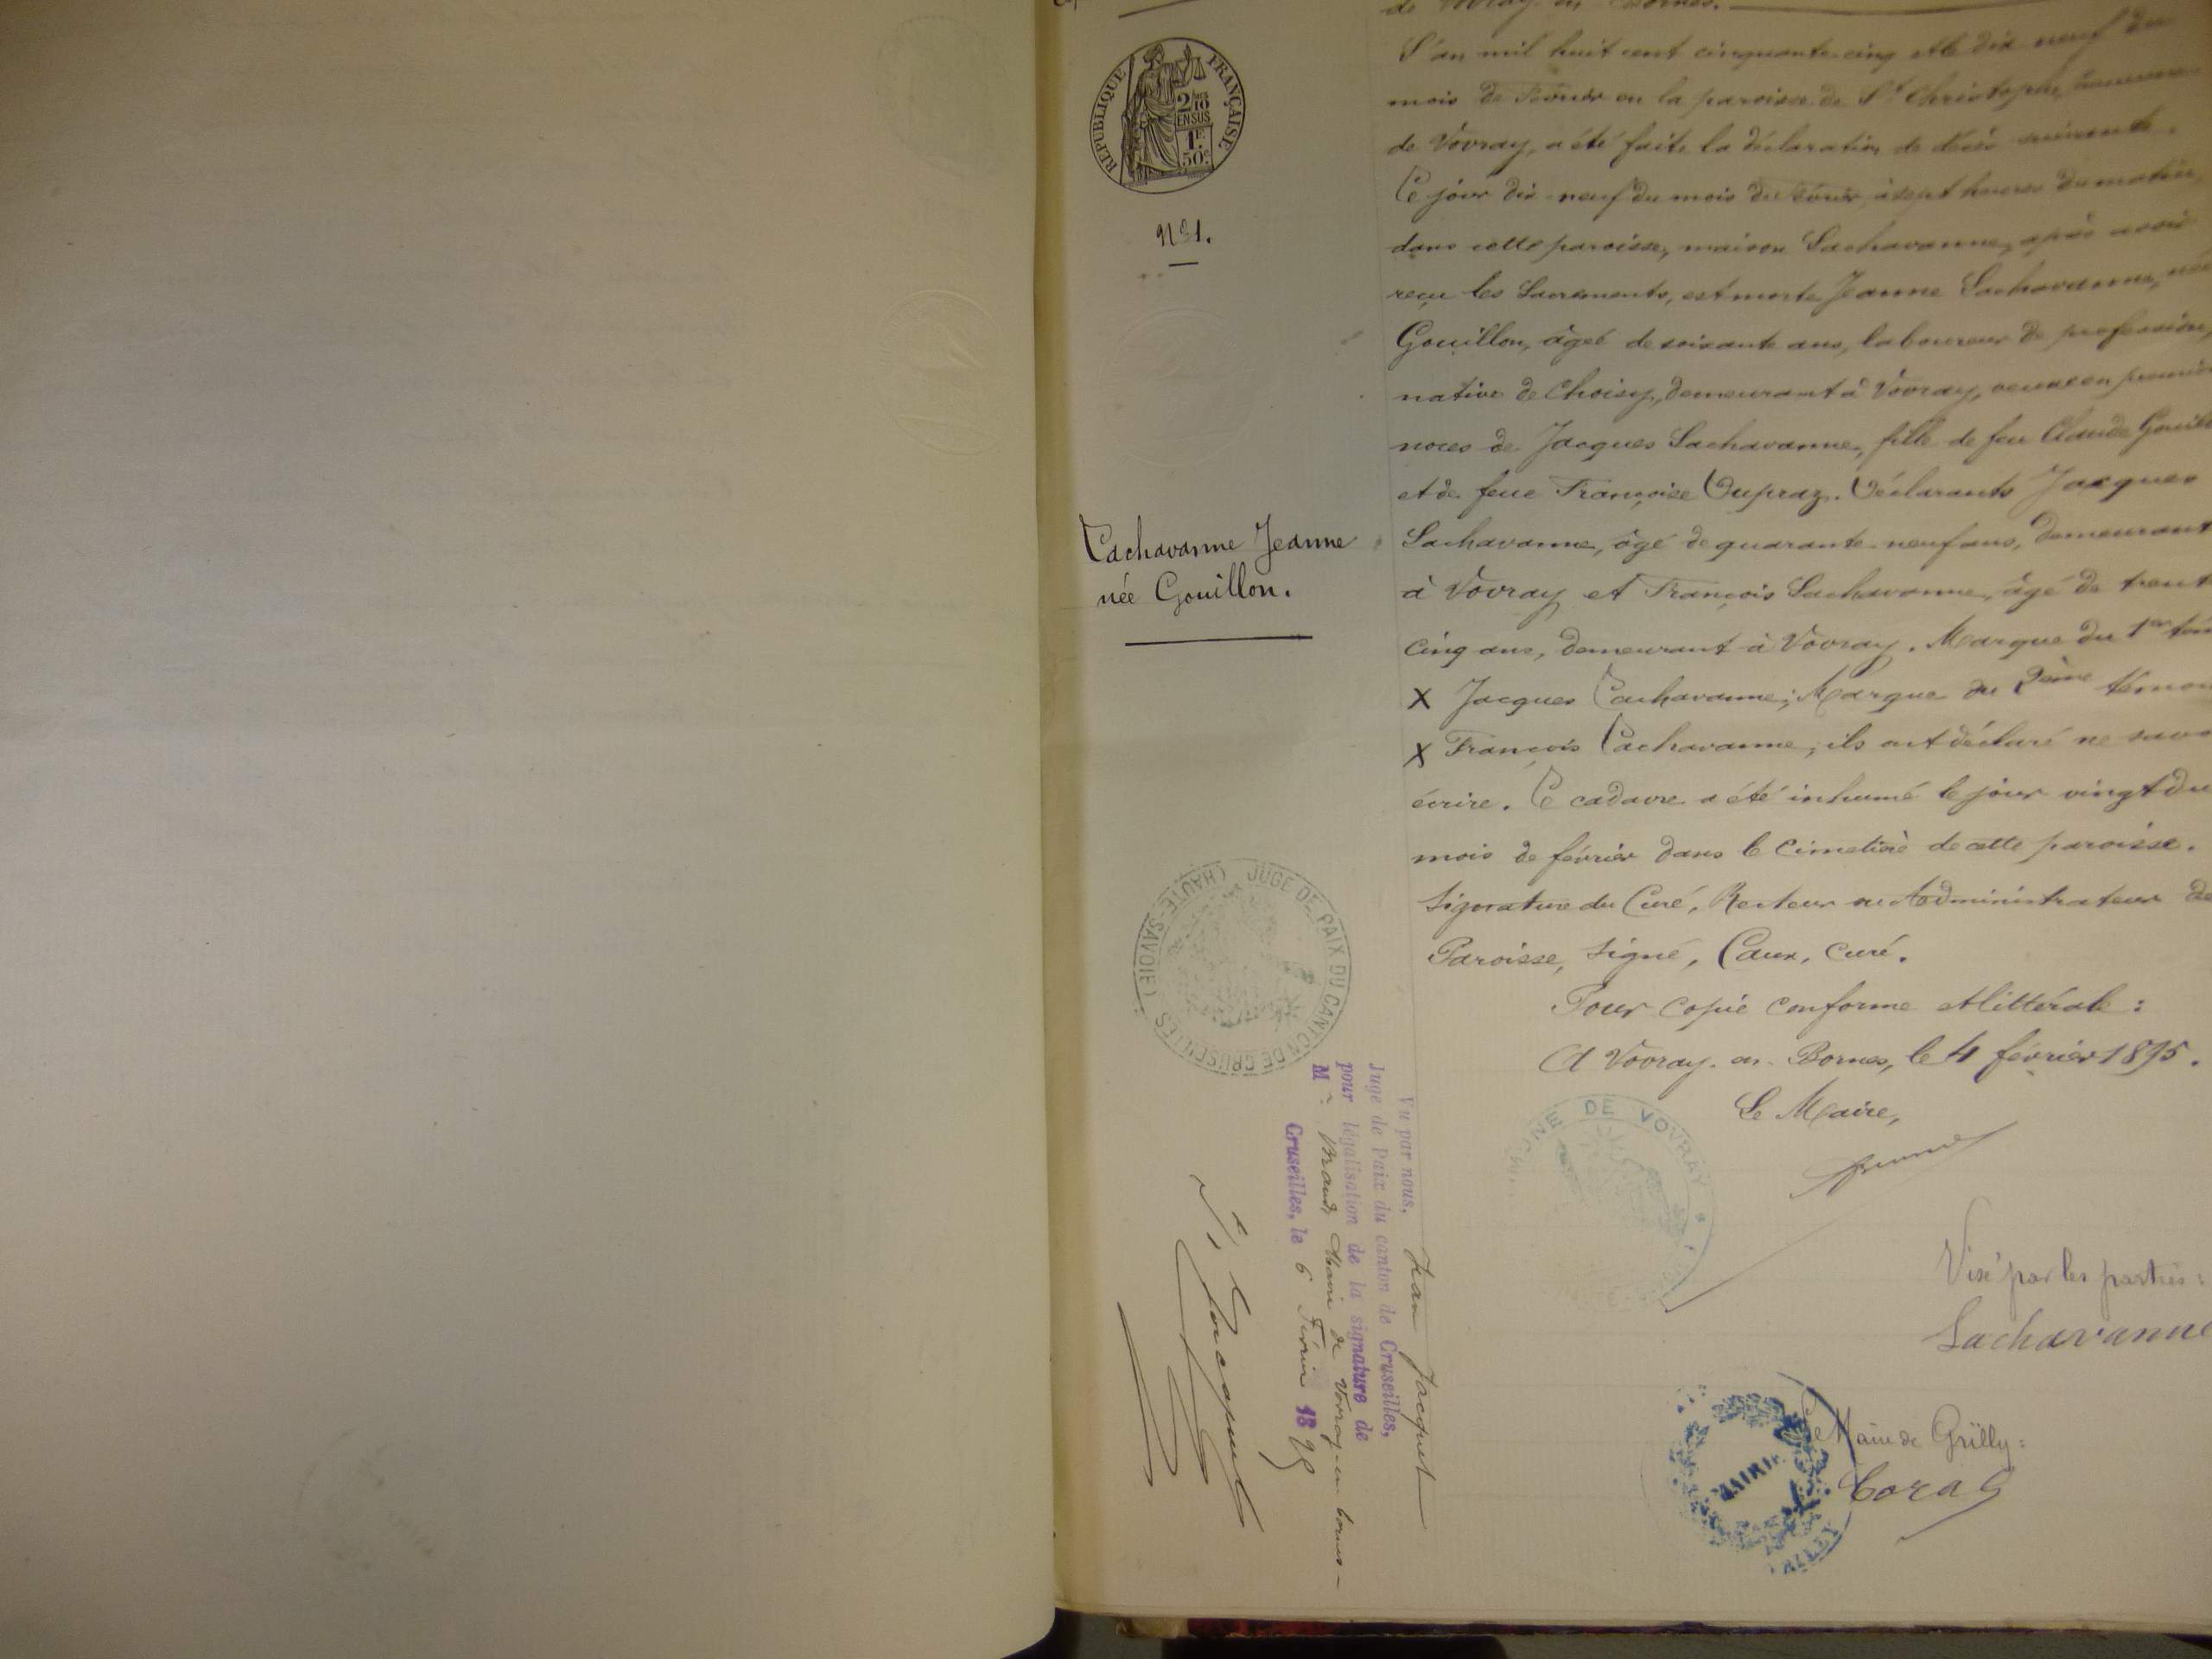 de Vovray en Bornes.
L'an mil huit cent cinquante cinq et le dix neuf du
mois de Février en la paroisse de St Christophe, commune
de Vovray, a été faite la déclaration de décès suivante.
Ce jour dix-neuf du mois de Février, à sept heures du matin,
dans cette paroisse, maison Lachavanne, après avoir
reçu les Sacrements, est morte Jeanne Lachavanne, née
Gouillon, âgée de soixante ans, laboureur de profession,
native de Choisy, demeurant à Vovray, veuve en première
noces de Jacques Lachavanne, fille de feu Claude Gouill
et de feue Françoise Dupraz. Déclarants Jacques
Lachavanne, âgé de quarante-neuf ans, demeurant
à Vovray et François Lachavanne, âgé de trente
cinq ans, demeurant à Vovray. Marque du 1er tém
X Jacques Lachavanne; Marque du 2ème témoi
X François Lachavanne; ils ont déclaré ne savo
écrire. Le cadavre a été inhumé le jour vingt du
mois de février dans le Cimetière de cette paroisse.
Signature du Curé, Recteur ou Administrateur de
Paroisse, Signé, Caux, curé.
Pour copie conforme et littérale:
A Vovray-en-Bornes, le 4 février 1895.
Le Maire,
RÉPUBLIQUE FRANÇAISE
2/10 EN SUS
1F. 50c.
N° 1.
Lachavanne Jeanne
née Gouillon.
JUGE DE PAIX DU CANTON DE CRUSEILLES (HAUTE-SAVOIE)
Vu par nous, Jean Jacquet
Juge de Paix du canton de Cruseilles,
pour légalisation de la signature de
M. Maire de Vovray en bornes
Cruseilles, le 6 Février 1895
COMMUNE DE VOVRAY
Visé par les parties:
Lachavanne
Le Maire de Grilly:
MAIRIE